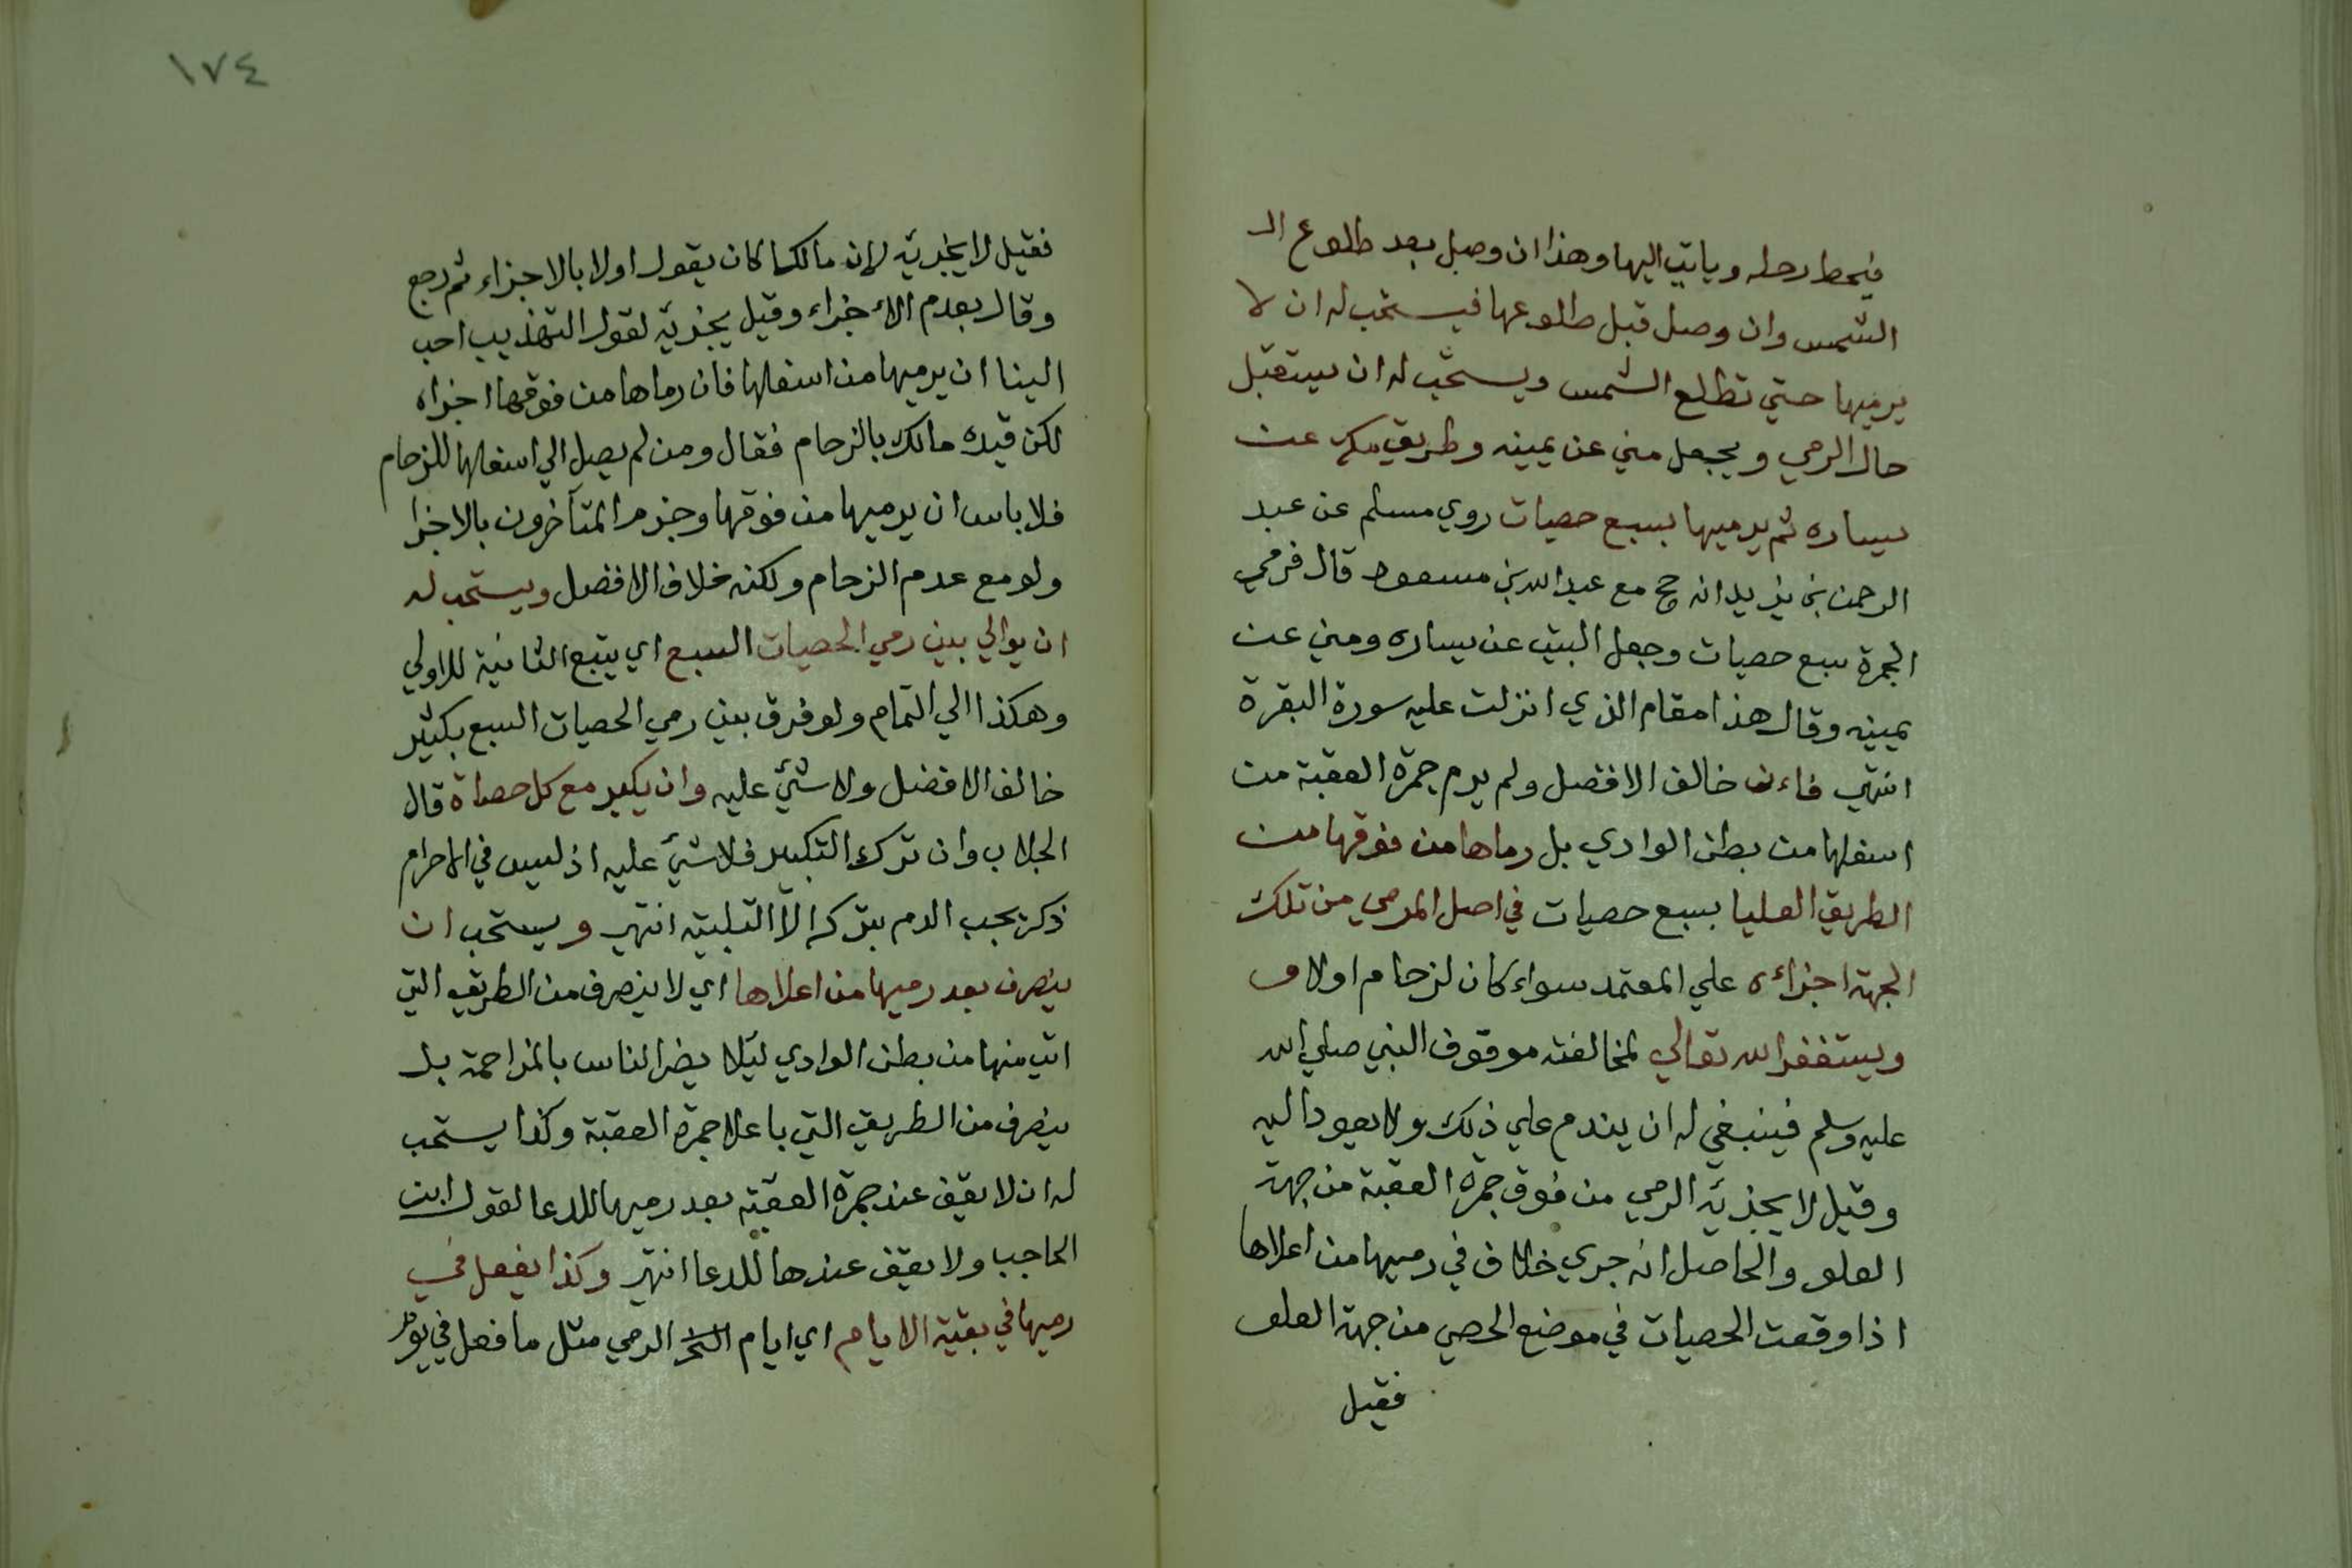 فيحط رحله وياتي اليها وهذا ان وصل بعد طلوع الـ
الشمس وان وصل قبل طلوعها فيستحب له ان لا
يرميها حتي تطلع الشمس ويستحب له ان يستقبل
حال الرمي ويجعل مني عن يمينه وطريق مكه عن
يساره ثم يرميها بسبع حصيات روي مسلم عن عبد
الرحمن بن يزيد انه حج مع عبد الله بن مسعود قال فرمي
الجمرة سبع حصيات وجعل البيت عن يساره ومني عن
يمينه وقال هذا مقام الذي انزلت عليه سورة البقرة
انتهي فاءن خالف الافضل ولم يرم جمرة العقبة من
اسفلها من بطن الوادي بل رماها من فوقها من
الطريق العليا بسبع حصيات في اصل المرمي من تلك
الجهة اجزاءه علي المعتمد سواء كان لزحام اولا و
ويستغفر الله تعالي لمخالفته موقوف النبي صلي الله
عليه وسلم فينبغي له ان يندم علي ذلك ولا يعود اليه
وقيل لا يجزئه الرمي من فوق جمرة العقبة من جهة
العلو والحاصل انه جري خلاف في رميها من اعلاها
اذا وقعت الحصيات في موضع الحصي من جهة العلو
فقيل
١٧٤
فقيل لا يجزيه لان مالكا كان يقول اولا بالاجزاء ثم رجع
وقال بعدم الاءجزاء وقيل يجزيه لقول التهذيب احب
الينا ان يرميها من اسفلها فان رماها من فوقها اجزاه
لكن قيده مالك بالزحام فقال ومن لم يصل الي اسفلها للزحام
فلا باس ان يرميها من فوقها وجزم المتآخرون بالاجزا
ولو مع عدم الزحام ولكنه خلاف الافضل ويستحب له
ان يوالي بين رمي الحصيات السبع اي يتبع الثانية للاولي
وهكذا الي التمام ولو فرق بين رمي الحصيات السبع بكثير
خالف الافضل ولا شئ عليه وان يكبر مع كل حصاة قال
الجلاب وان ترك التكبير فلا شئ عليه اذ ليس في الاحرام
ذكر يجب الدم بتركه الا التلبيه انتهي ويستحب ان
ينصرف بعد رميها من اعلاها اي لا ينصرف من الطريق التي
اتي منها من بطن الوادي ليلا يضر الناس بالمزاحمة بل
ينصرف من الطريق التي باعلا جمرة العقبة وكذا يستحب
له ان لا يقف عند جمرة العقبه بعد رميها للدعا لقول ابن
الحاجب ولا يقف عندها للدعا انتهي وكذا يفعل في
رميها في بقية الايام اي ايام الرمي مثل ما فعل في يوم